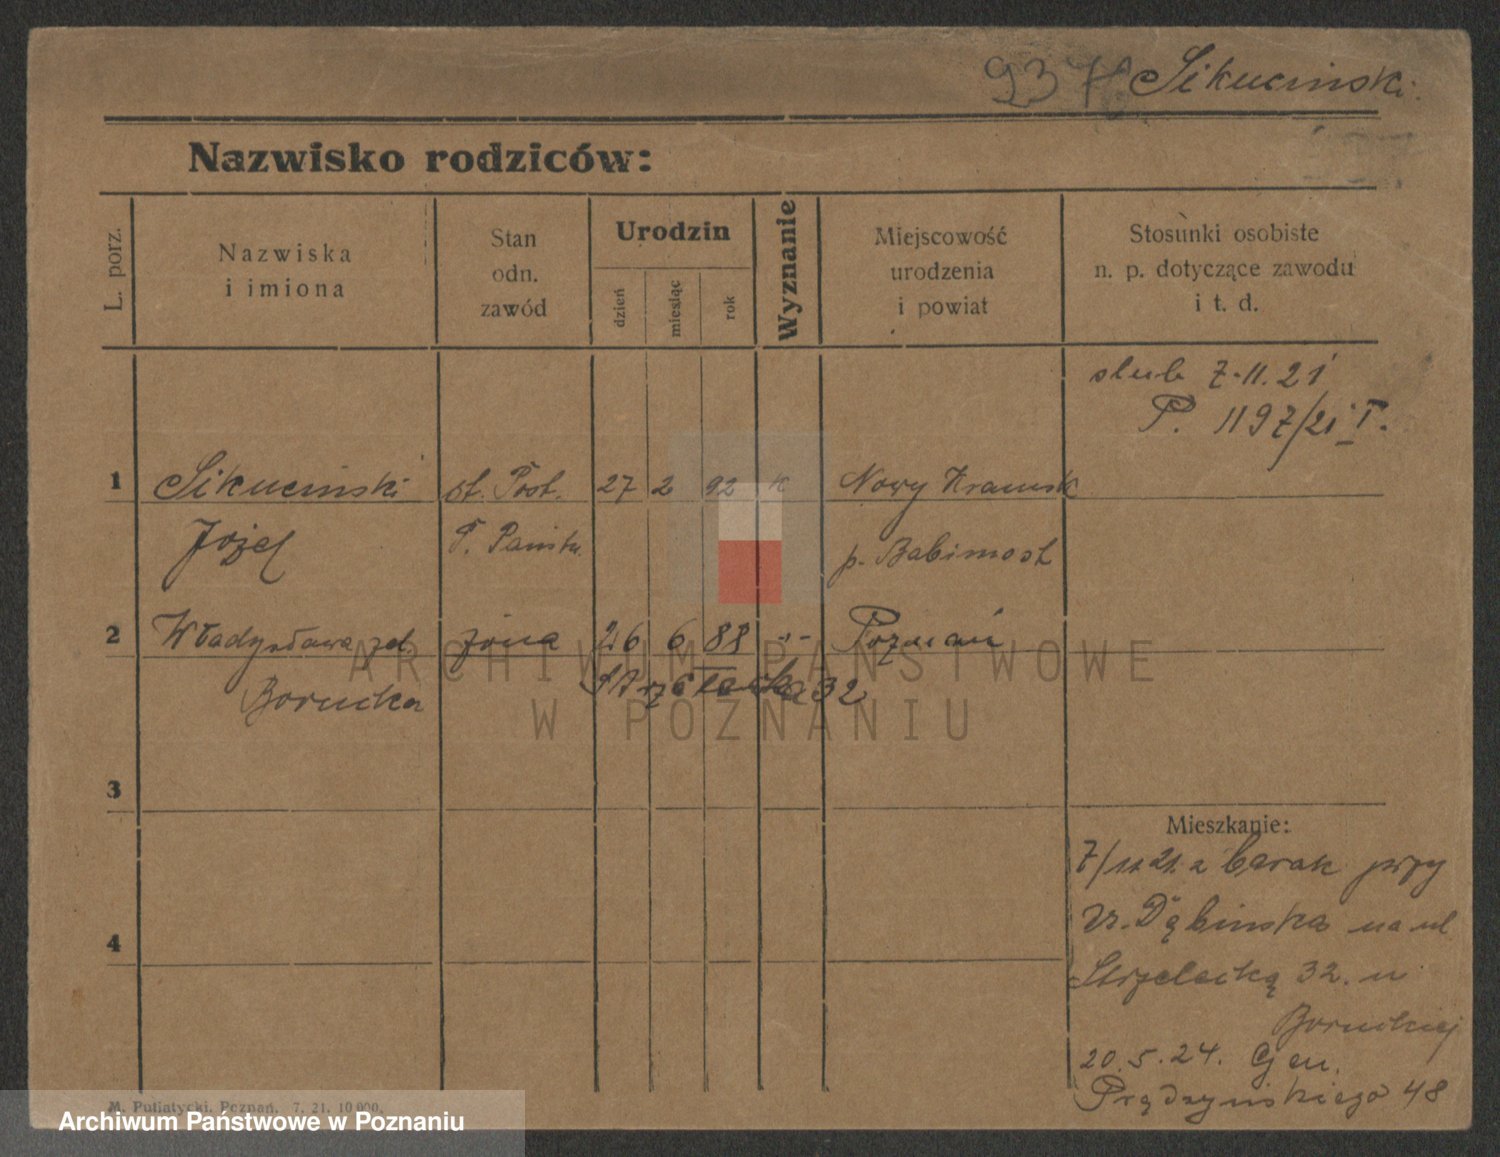 937. Sikuciński.
Nazwisko rodziców:
L. porz.
Nazwiska
i imiona
Stan
odn.
zawód
Urodzin
dzień
miesiąc
rok
Wyznanie
Miejscowość
urodzenia
i powiat
Stosunki osobiste
n. p. dotyczące zawodu
i t. d.
slub 7.11.21
P. 1197/21 I.
1 Sikuciński st. Post. 27 2 92 k Nowy Kramsk
Józef P. Państw. p. Babimost
2 Władysława zd. żona 26 6 88 -"- Poznań
Borucka Strzelecka 32
3
Mieszkanie:
7/11 21. z barak przy
Dr. Dębinska na ul
4
Strzelecką 32. u
Boruckiej
20.5.24. Gen.
Prądzyńskiego 48
M. Putiatycki, Poznań, 7. 21. 10 000.
ARCHIWUM PAŃSTWOWE
W POZNANIU
Archiwum Państwowe w Poznaniu